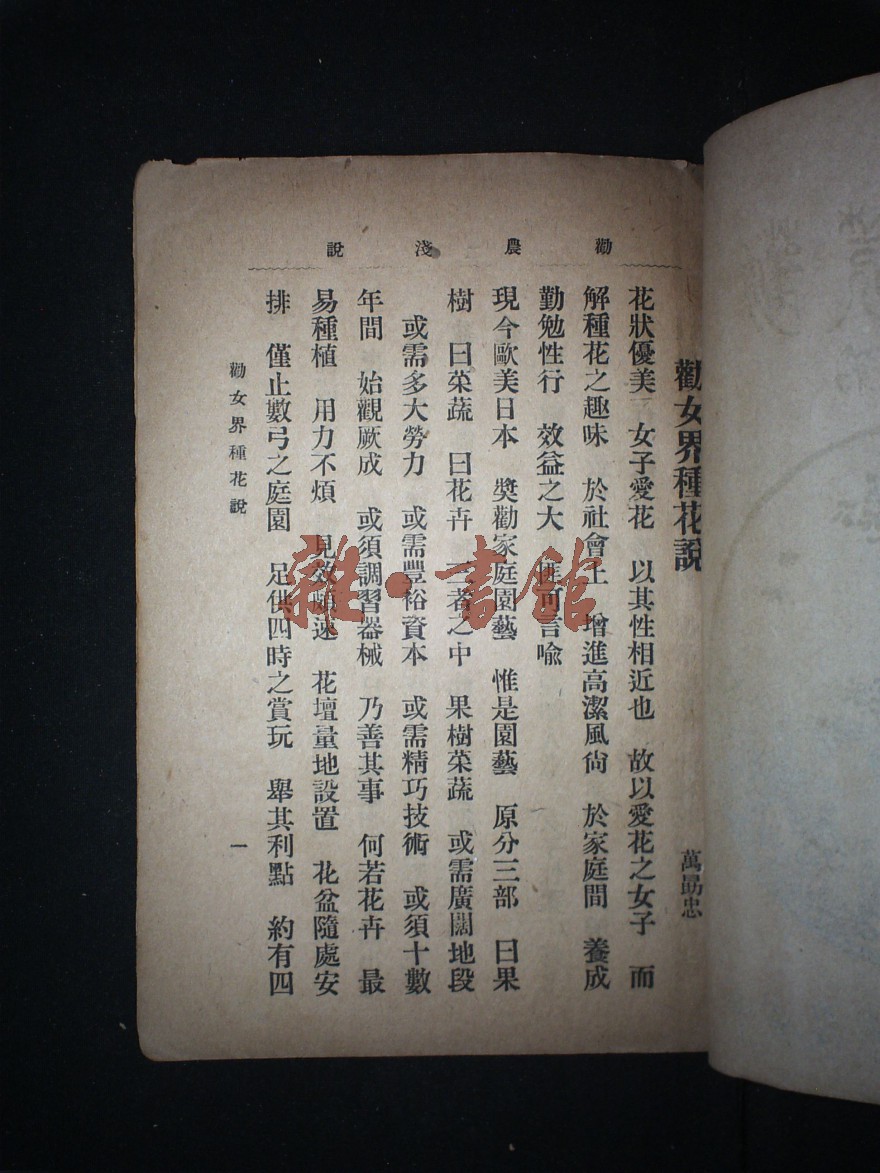 勸農淺說
勸女界種花說
萬勗忠
花狀優美　女子愛花　以其性相近也　故以愛花之女子　而
解種花之趣味　於社會上　增進高潔風尙　於家庭間　養成
勤勉性行　效益之大　可言喩
現今歐美日本　奬勸家庭園藝　惟是園藝　原分三部　曰果
樹　曰菜蔬　曰花卉　三者之中　果樹菜蔬　或需廣闊地段
或需多大勞力　或需豐裕資本　或需精巧技術　或須十數
年間　始觀厥成　或須調習器械　乃善其事　何若花卉　最
易種植　用力不煩　見效頗速　花壇量地設置　花盆隨處安
排　僅止數弓之庭園　足供四時之賞玩　舉其利點　約有四
勸女界種花說
一
雜·書館